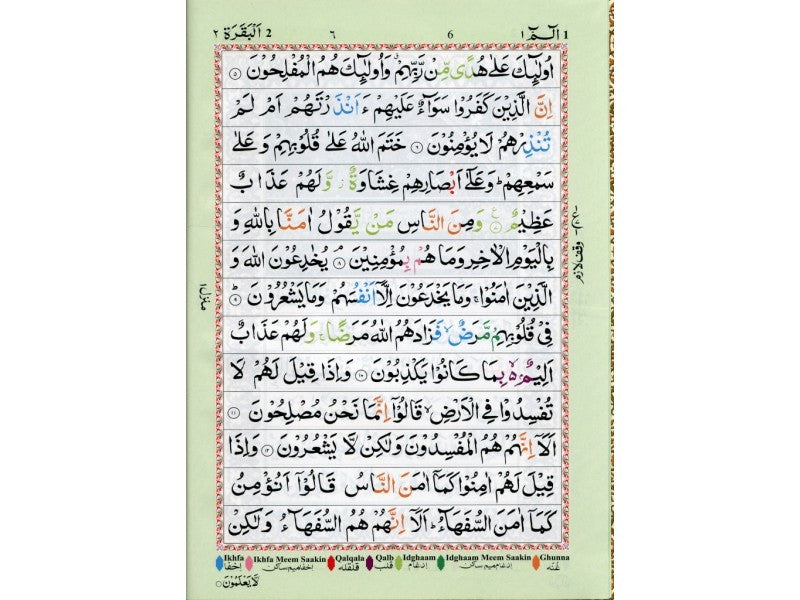 1 الٓـمّٓ ١ 6 ٦ 2 اَلْبَقَرَة ٢
اُولٰٓئِكَ عَلٰى هُدًى مِّنْ رَّبِّهِمْ ۗ وَاُولٰٓئِكَ هُمُ الْمُفْلِحُوْنَ ۝٥
اِنَّ الَّذِيْنَ كَفَرُوْا سَوَآءٌ عَلَيْهِمْ ءَاَنْذَرْتَهُمْ اَمْ لَمْ
تُنْذِرْهُمْ لَا يُؤْمِنُوْنَ ۝٦ خَتَمَ اللّٰهُ عَلٰى قُلُوْبِهِمْ وَعَلٰى
سَمْعِهِمْ ؕ وَعَلٰٓى اَبْصَارِهِمْ غِشَاوَةٌ ۫ وَّلَهُمْ عَذَابٌ
عَظِيْمٌ ۝٧ وَمِنَ النَّاسِ مَنْ يَّقُوْلُ اٰمَنَّا بِاللّٰهِ وَ
بِالْيَوْمِ الْاٰخِرِ وَمَا هُمْ بِمُؤْمِنِيْنَ ۝٨ يُخٰدِعُوْنَ اللّٰهَ وَ
الَّذِيْنَ اٰمَنُوْا ۚ وَمَا يَخْدَعُوْنَ اِلَّآ اَنْفُسَهُمْ وَمَا يَشْعُرُوْنَ ۝٩
فِيْ قُلُوْبِهِمْ مَّرَضٌ ۙ فَزَادَهُمُ اللّٰهُ مَرَضًا ۚ وَلَهُمْ عَذَابٌ
اَلِيْمٌ ۢ ۙ بِمَا كَانُوْا يَكْذِبُوْنَ ۝١٠ وَاِذَا قِيْلَ لَهُمْ لَا
تُفْسِدُوْا فِي الْاَرْضِ ۙ قَالُوْٓا اِنَّمَا نَحْنُ مُصْلِحُوْنَ ۝١١
اَلَآ اِنَّهُمْ هُمُ الْمُفْسِدُوْنَ وَلٰكِنْ لَّا يَشْعُرُوْنَ ۝١٢ وَاِذَا
قِيْلَ لَهُمْ اٰمِنُوْا كَمَآ اٰمَنَ النَّاسُ قَالُوْٓا اَنُؤْمِنُ
كَمَآ اٰمَنَ السُّفَهَآءُ ؕ اَلَآ اِنَّهُمْ هُمُ السُّفَهَآءُ وَلٰكِنْ
وقف لازم
منزل ١
Ikhfa Ikhfa Meem Saakin Qalqala Qalb Idghaam Idghaam Meem Saakin Ghunna
اخفا اخفا میم ساکن قلقله قلب ادغام ادغام میم ساکن غنّه
لَّا يَعْلَمُوْنَ